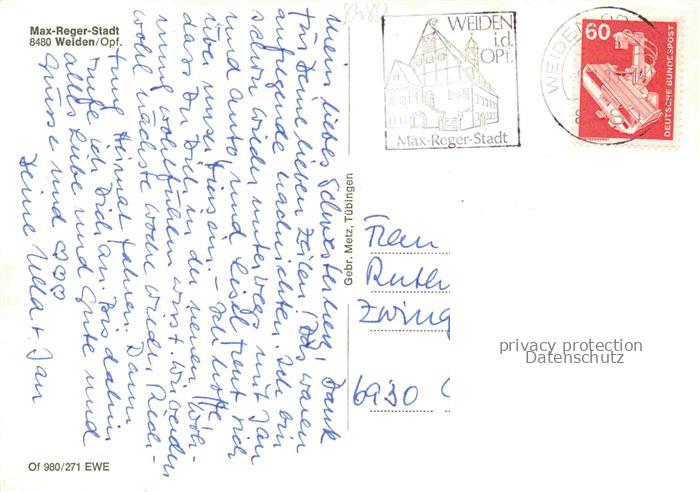 Max-Reger-Stadt
8480 Weiden/Opf.
8480
WEIDEN
i.d.
OPf.
Max-Reger-Stadt
WEIDEN
60
DEUTSCHE BUNDESPOST
Mein liebes Schwesterlein! Dank
für Deine lieben Zeilen! Das waren
aufregende Nachrichten. Ich bin
schon wieder unterwegs mit Jan
und Auto und Liesel freut sich
über unser Hiersein. – Ich hoffe,
dass Du Dich in der neuen Woh-
nung wohlfühlen wirst. Wir werden
wohl nächste Woche wieder Rich-
tung Heimat fahren. Dann
rufe ich Dich an. Bis dahin
alles Liebe und Gute und
Grüsse und ♡♡♡
Deine Ulla + Jan
Gebr. Metz, Tübingen
Frau
Ruth
Zwing
6930
privacy protection
Datenschutz
Of 980/271 EWE